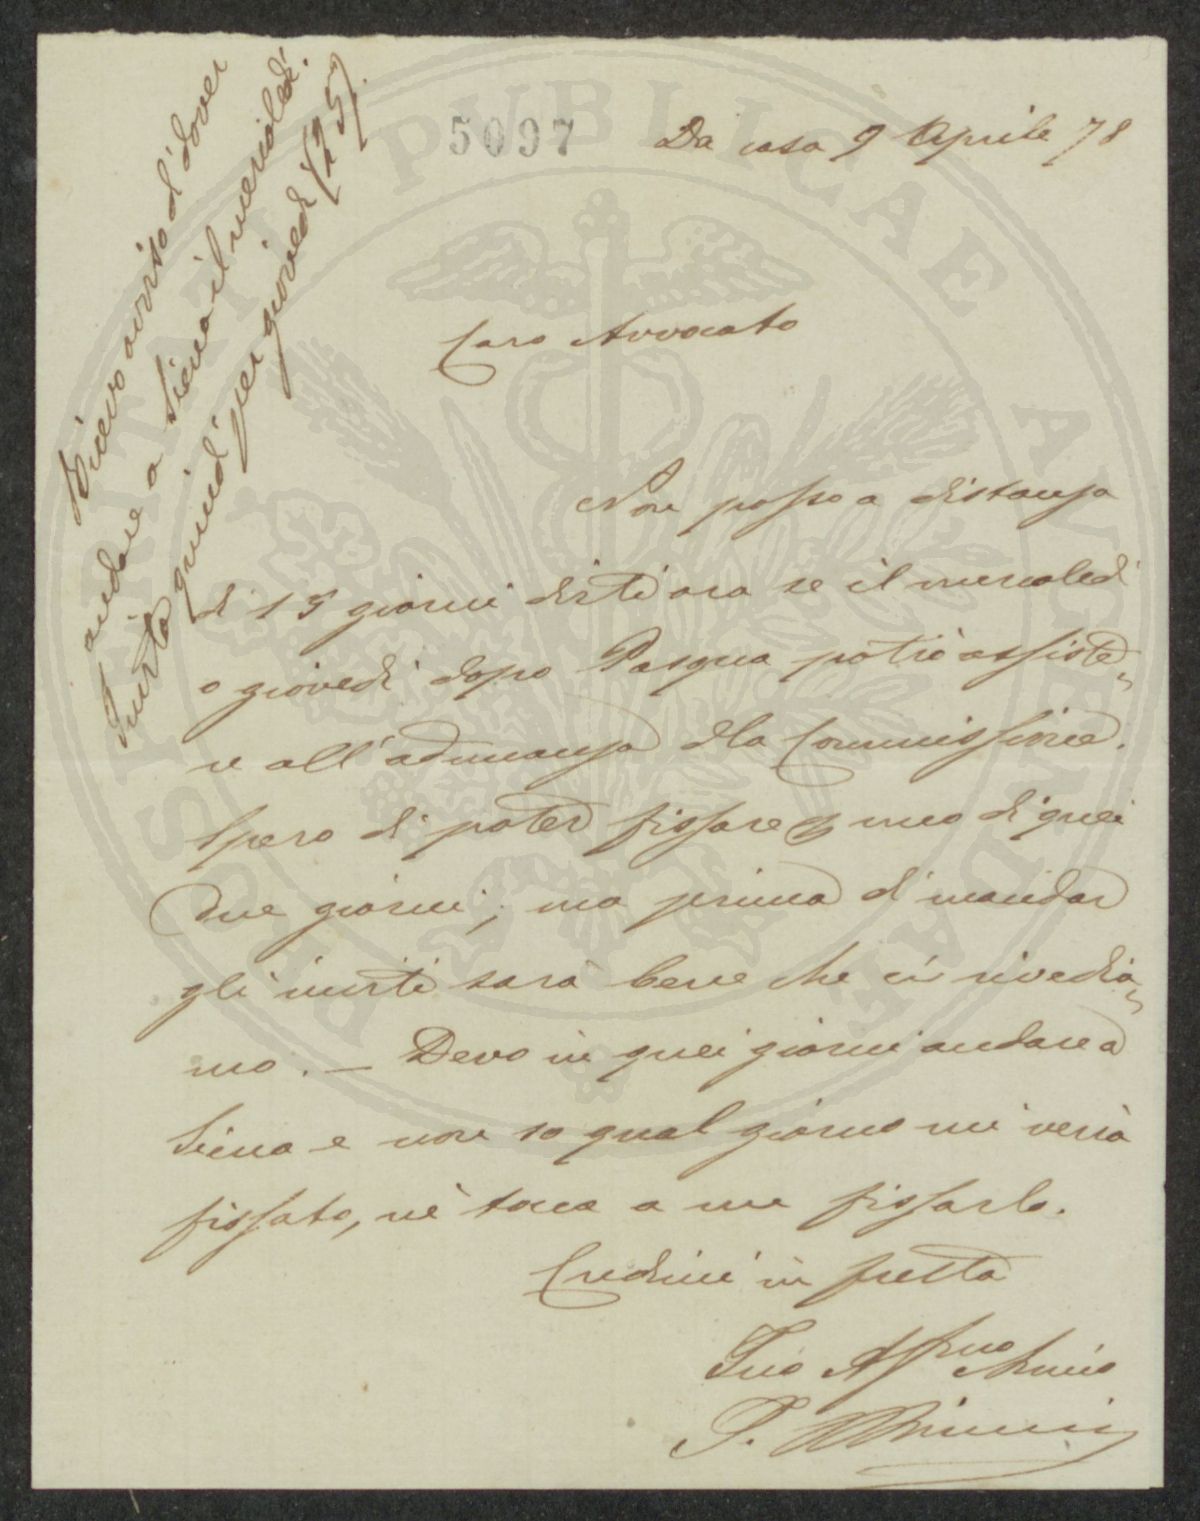 5097
Da casa 9 Aprile 78
Caro Avvocato
Non posso a distanza
di 15 giorni dirti ora se il mercoledì
o giovedì dopo Pasqua potrò assiste-
re all'adunanza dla Commissione.
Spero di poter fissare uno di quei
due giorni; ma prima di mandar
gli inviti sarà bene che ci rivedia-
mo. — Devo in quei giorni andare a
Siena e non so qual giorno mi verrà
fissato, nè tocca a me fissarlo.
Credimi in fretta
Tuo Affmo Amico
P.
Ricevo avviso d'dover
andare a Siena il mercoledì.
Invita quindi per giovedì (25).
PUBLICAE